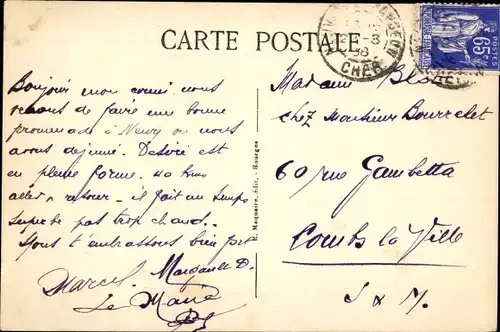 CARTE POSTALE
CHER
POSTES
65c
Bonjour mon nous
venons de faire une bonne
promenade à Neuvy où nous
avons déjeuné. Désiré est
en pleine forme. 40 kms
aller retour - il fait un temps
superbe pas trop chaud.
Nous t'embrassons bien fort
Marcel. D.
Le
Madame
chez Monsieur Bourrelet
60 rue Gambetta
Combs la Ville
S & M.
E. Maquaire, édit., Bourges